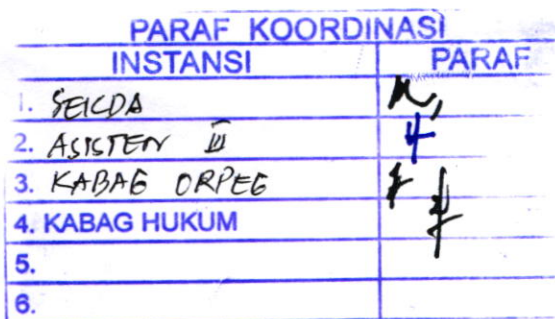 PARAF KOORDINASI
INSTANSI PARAF
1. SEKDA
2. ASISTEN III
3. KABAG ORPEG
4. KABAG HUKUM
5.
6.